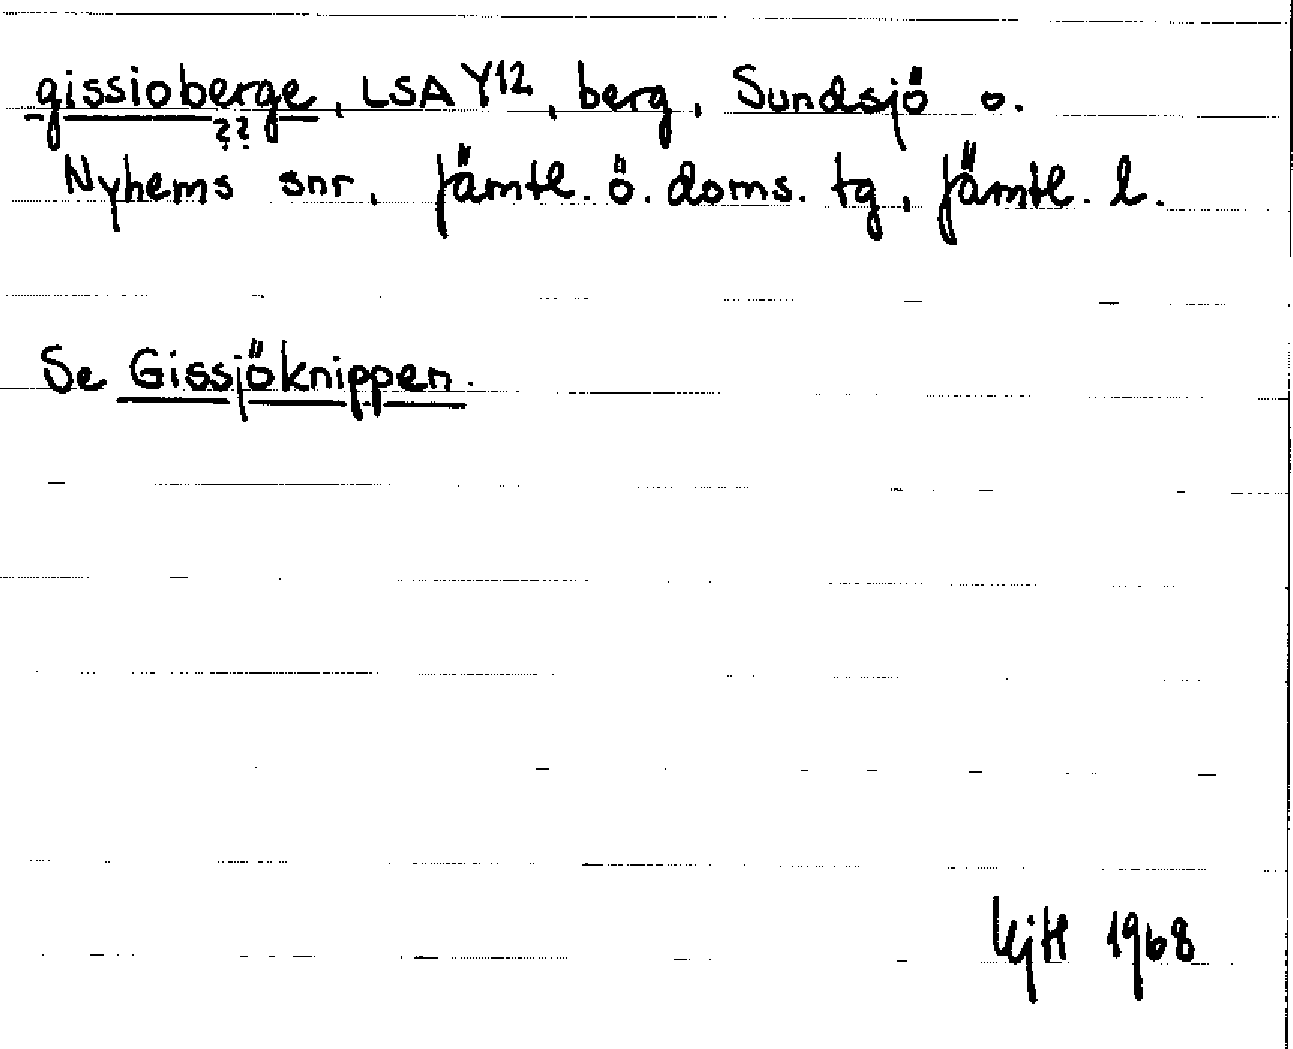 gissioberge, LSA Y12, berg, Sundsjö o.
??
Nyhems snr, Jämtl. ö. doms. tg, Jämtl. l.
Se Gissjöknippen.
KjH 1968